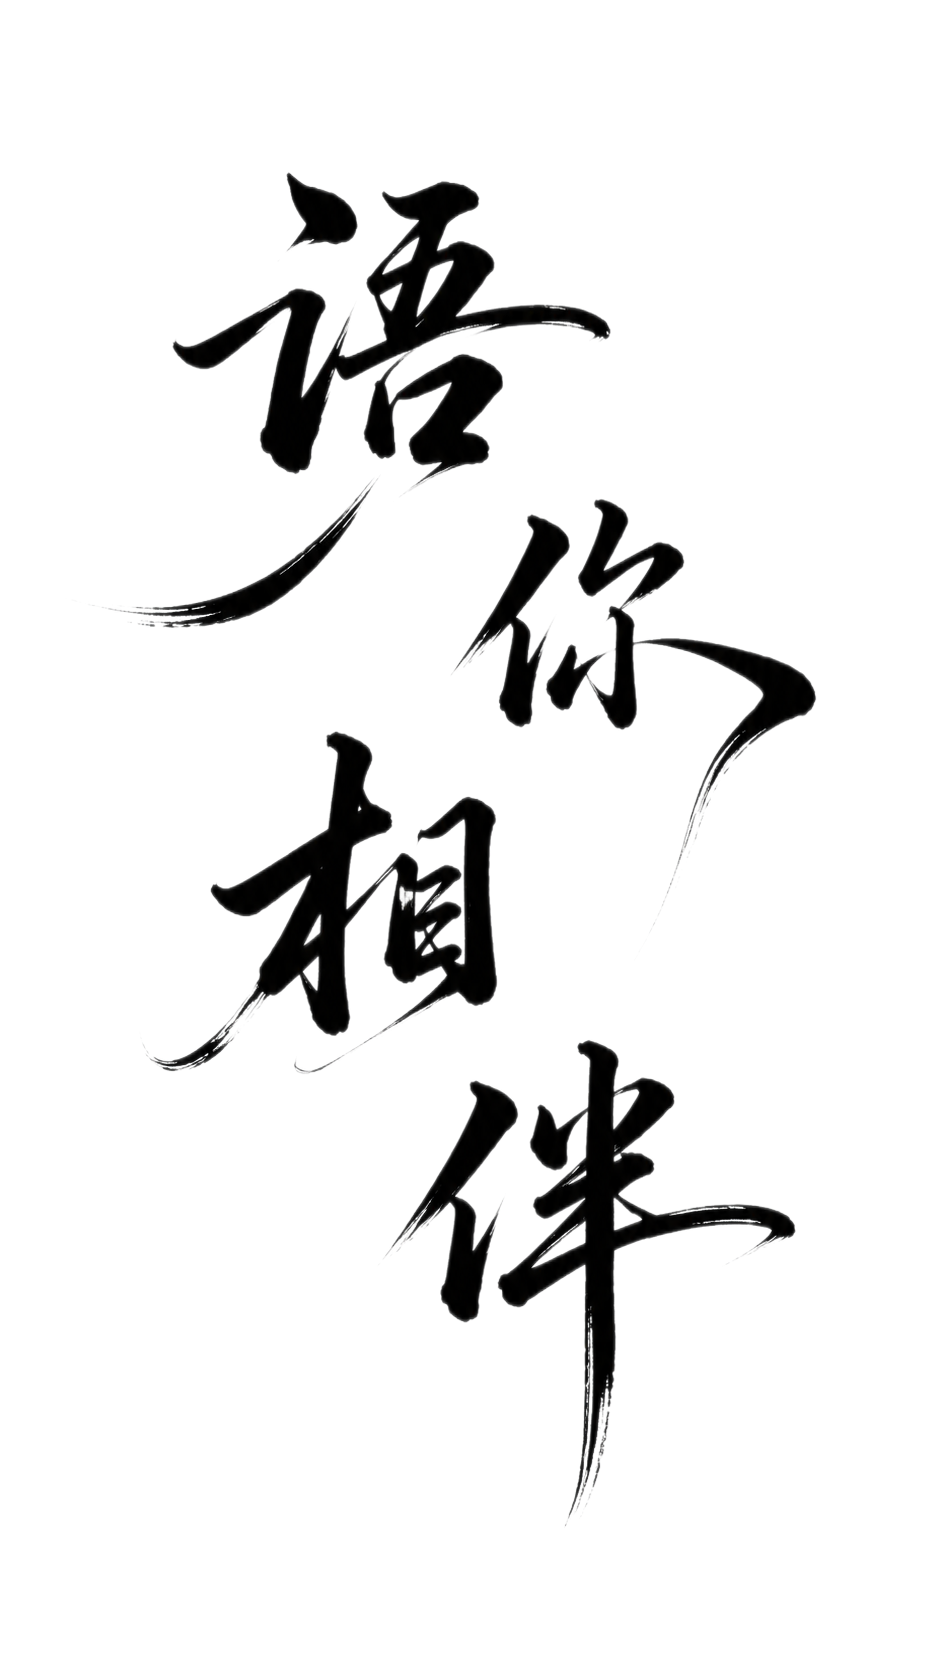 语
你
相
伴